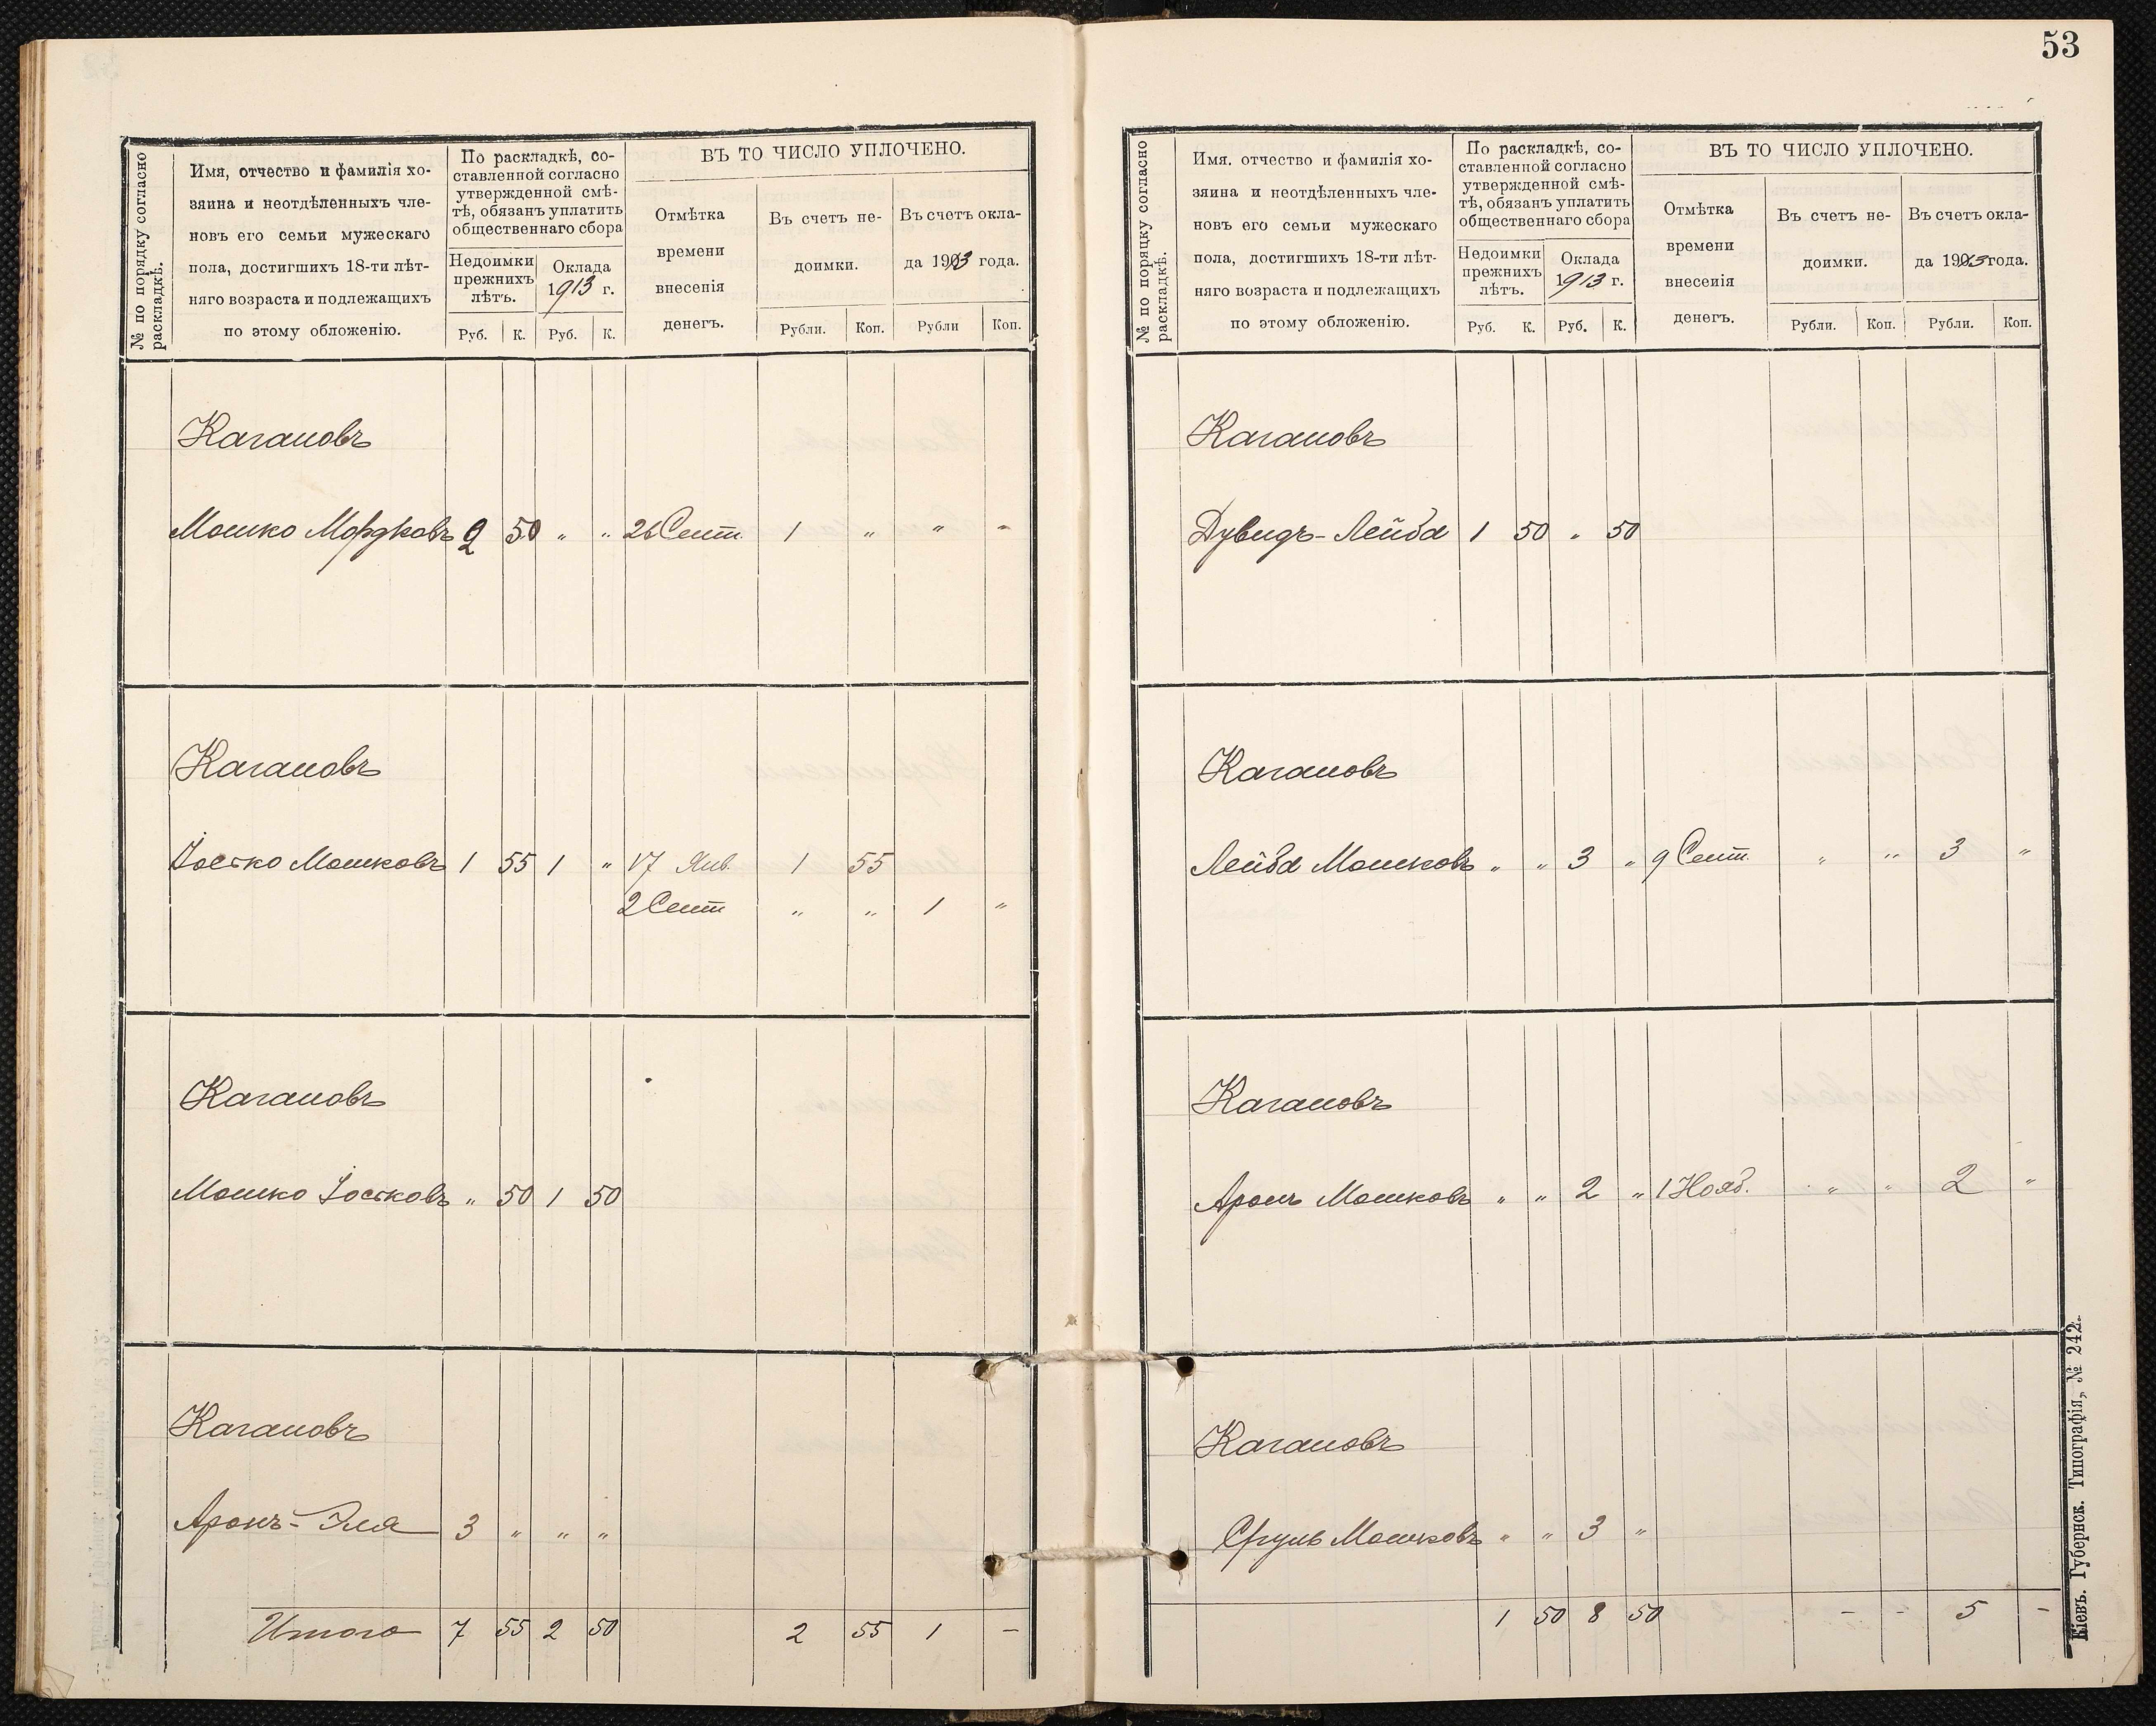 53
№ по порядку согласно
раскладкѣ.
Имя, отчество и фамилія хо-
зяина и неотдѣленныхъ чле-
новъ его семьи мужескаго
пола, достигшихъ 18-ти лѣт-
няго возраста и подлежащихъ
по этому обложенію.
По раскладкѣ, со-
ставленной согласно
утвержденной смѣ-
тѣ, обязанъ уплатить
общественнаго сбора
Недоимки
прежнихъ
лѣтъ.
Оклада
1913 г.
Руб. К. Руб. К.
ВЪ ТО ЧИСЛО УПЛОЧЕНО.
Отмѣтка
времени
внесенія
денегъ.
Въ счетъ не-
доимки.
Въ счетъ окла-
да 1913 года.
Рубли. Коп. Рубли Коп.
Кагановъ
Мошко Мордковъ 2 50 „ „ 26 Сент. 1 „ „ „
Кагановъ
Іоско Мошковъ 1 55 1 „ 17 Янв. 1 55
2 Сент „ „ 1 „
Кагановъ
Мошко Іосковъ „ 50 1 50
Кагановъ
Аронъ-Эля 3 „ „ „
Итого 7 55 2 50 2 55 1 —
№ по поряцку согласно
раскладкѣ.
Имя. отчество и фамилія хо-
зяина и неотдѣленныхъ чле-
новъ его семьи мужескаго
пола, достигшихъ 18-ти лѣт-
няго возраста и подлежащихъ
по этому обложенію.
По раскладкѣ, со-
ставленной согласно
утвержденной смѣ-
тѣ, обязанъ уплатить
общественнаго сбора
Недоимки
прежнихъ
лѣтъ.
Оклада
1913 г.
Руб. К. Руб. К.
ВЪ ТО ЧИСЛО УПЛОЧЕНО.
Отмѣтка
времени
внесенія
денегъ.
Въ счетъ не-
доимки.
Въ счетъ окла-
да 1913 года.
Рубли. Коп. Рубли. Коп.
Кагановъ
Дувидъ-Лейба 1 50 „ 50
Кагановъ
Лейба Мошковъ „ „ 3 „ 9 Сент. „ „ 3 „
Кагановъ
Аронъ Мошковъ „ „ 2 „ 1 Нояб. „ „ 2 „
Кагановъ
Сруль Мошковъ „ „ 3 „
1 50 8 50 — — 5 —
Кіевъ. Губернск. Типографія, № 242.